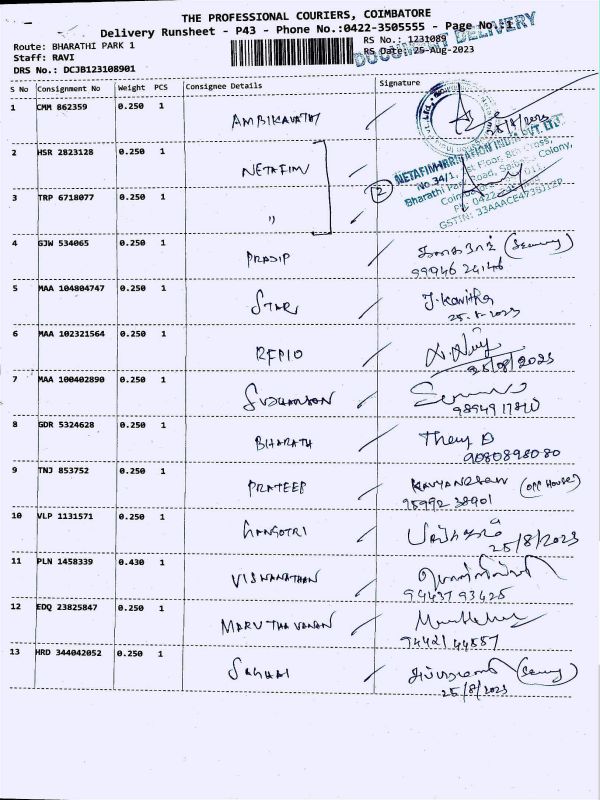 THE PROFESSIONAL COURIERS, COIMBATORE
Delivery Runsheet - P43 - Phone No.:0422-3505555 - Page No.:1
Route: BHARATHI PARK 1
RS No.: 1231089
Staff: RAVI
RS Date: 25-Aug-2023
DRS No.: DCJB123108901
DOCUMENT DELIVERY
S No Consignment No Weight PCS Consignee Details Signature
1 CMM 862359 0.250 1 AMBIKAVATHY 25/8/2023
2 HSR 2823128 0.250 1 NETAFIM
NETAFIM IRRIGATION INDIA PVT. LTD.
No.34/1, Floor, 8th Cross,
Bharathi Park Road, Colony,
GSTIN: 33AAACE4735J1ZP
3 TRP 6718077 0.250 1 " 2
4 GJW 534065 0.250 1 PRADIP (Security)
99946 24146
5 MAA 104804747 0.250 1 STAR J. Kavitha
25.8.2023
6 MAA 102321564 0.250 1 REPIO
25/08/2023
7 MAA 100402890 0.250 1 SUDHARSON
8 GDR 5324628 0.250 1 BHARATH
9080898080
9 TNJ 853752 0.250 1 PRATEEP (OPP HOUSE)
95992 38901
10 VLP 1131571 0.250 1 GANGOTRI
25/8/2023
11 PLN 1458339 0.430 1 VISWANATHAN
94437 93425
12 EDQ 23825847 0.250 1 MARUTHAVANAN
94421 44557
13 HRD 344042052 0.250 1
25/8/2023